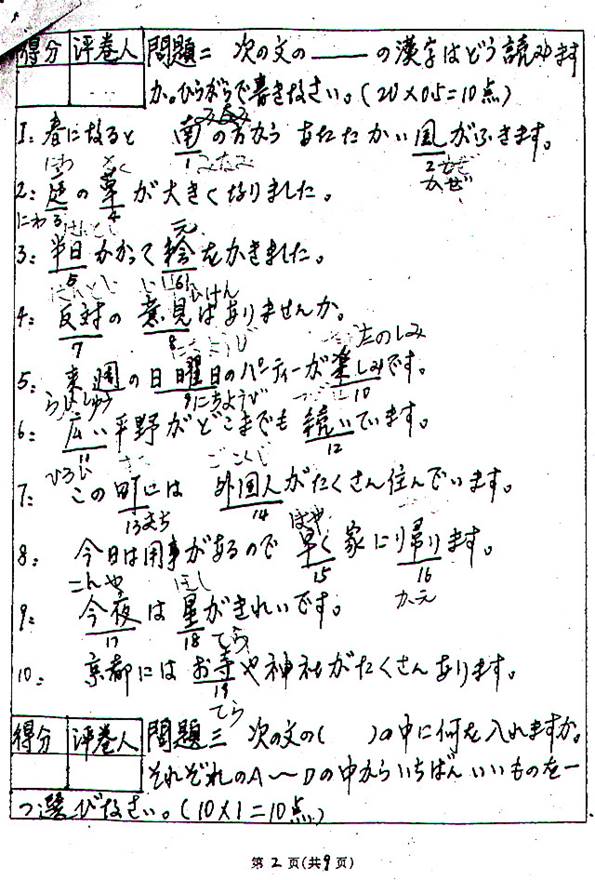 得分 评卷人 問題二 次の文の____の漢字はどう読みます
か。ひらがらで書きなさい。(20×0.5=10点)
1: 春になると 南の方から あたたかい 風がふきます。
1 みなみ 2 かぜ
にわ
2: 庭の草が大きくなりました。
にわ 3 4
元
3: 半日かかって絵をかきました。
5 6
4: 反対の意見はありませんか。
7 8
たのしみ
5: 来週の日曜日のパーティーが楽しみです。
らいしゅう 9 にちようび 10
6: 広い平野がどこまでも続いています。
11 12
ひろい
7: この町には 外国人がたくさん住んでいます。
13 まち 14
はや
8: 今日は用事があるので 早く家にり帰ります。
15 16
こんや ほし かえ
9: 今夜は星がきれいです。
17 18 てら
10: 京都にはお寺や神社がたくさんあります。
19
てら
得分 评卷人 問題三 次の文の( )の中に何を入れますか。
それぞれのA〜Dの中からいちばんいいものを一
つ選びなさい。(10×1=10点)
第 2 页(共9页)